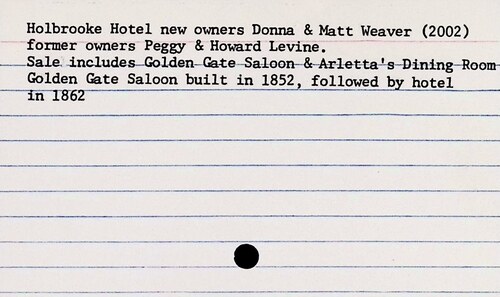 Holbrooke Hotel new owners Donna & Matt Weaver (2002)
former owners Peggy & Howard Levine.
Sale includes Golden Gate Saloon & Arletta's Dining Room
Golden Gate Saloon built in 1852, followed by hotel
in 1862